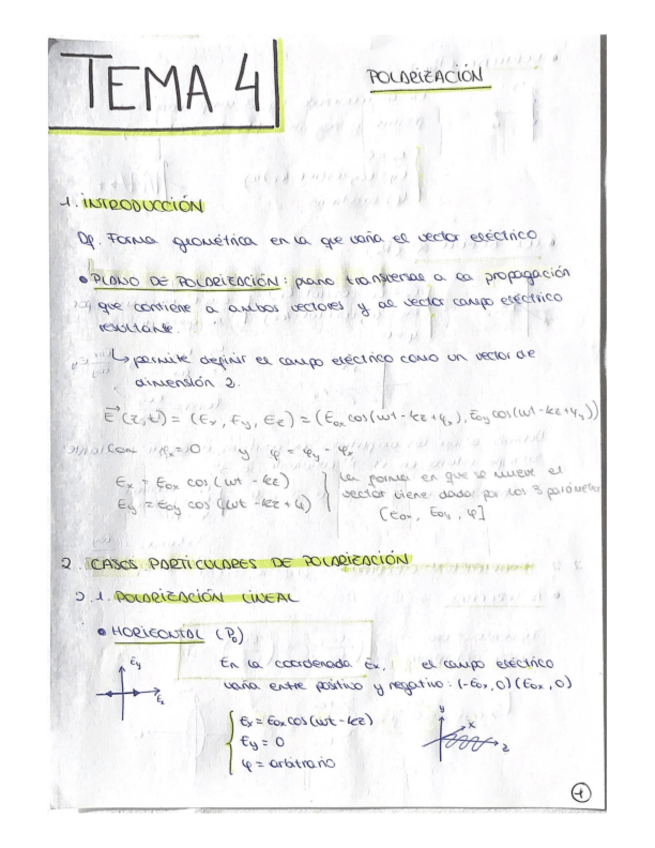 TEMA 4
POLARIZACIÓN
1. INTRODUCCIÓN
Df. Forma geométrica en la que varía el vector eléctrico
• PLANO DE POLARIZACIÓN: plano transversal a la propagación
que contiene a ambos vectores y al vector campo eléctrico
resultante.
↳ permite definir el campo eléctrico como un vector de
dimensión 2.
E⃗(z,t) = (Ex, Ey, Ez) = (Eox cos(ωt - kz + φx), Eoy cos(ωt - kz + φy))
Con φx = 0 y φ = φy - φx
Ex = Eox cos(ωt - kz)
Ey = Eoy cos(ωt - kz + φ)
La forma en que se mueve el
vector viene dada por los 3 parámetros
[Eox, Eoy, φ]
2. CASOS PARTICULARES DE POLARIZACIÓN
2.1. POLARIZACIÓN LINEAL
• HORIZONTAL (P0)
En la coordenada Ex, el campo eléctrico
varía entre positivo y negativo: (-Eox, 0) (Eox, 0)
Ey
Ex
Ex = Eox cos(ωt - kz)
Ey = 0
φ = arbitrario
y
x
z
1